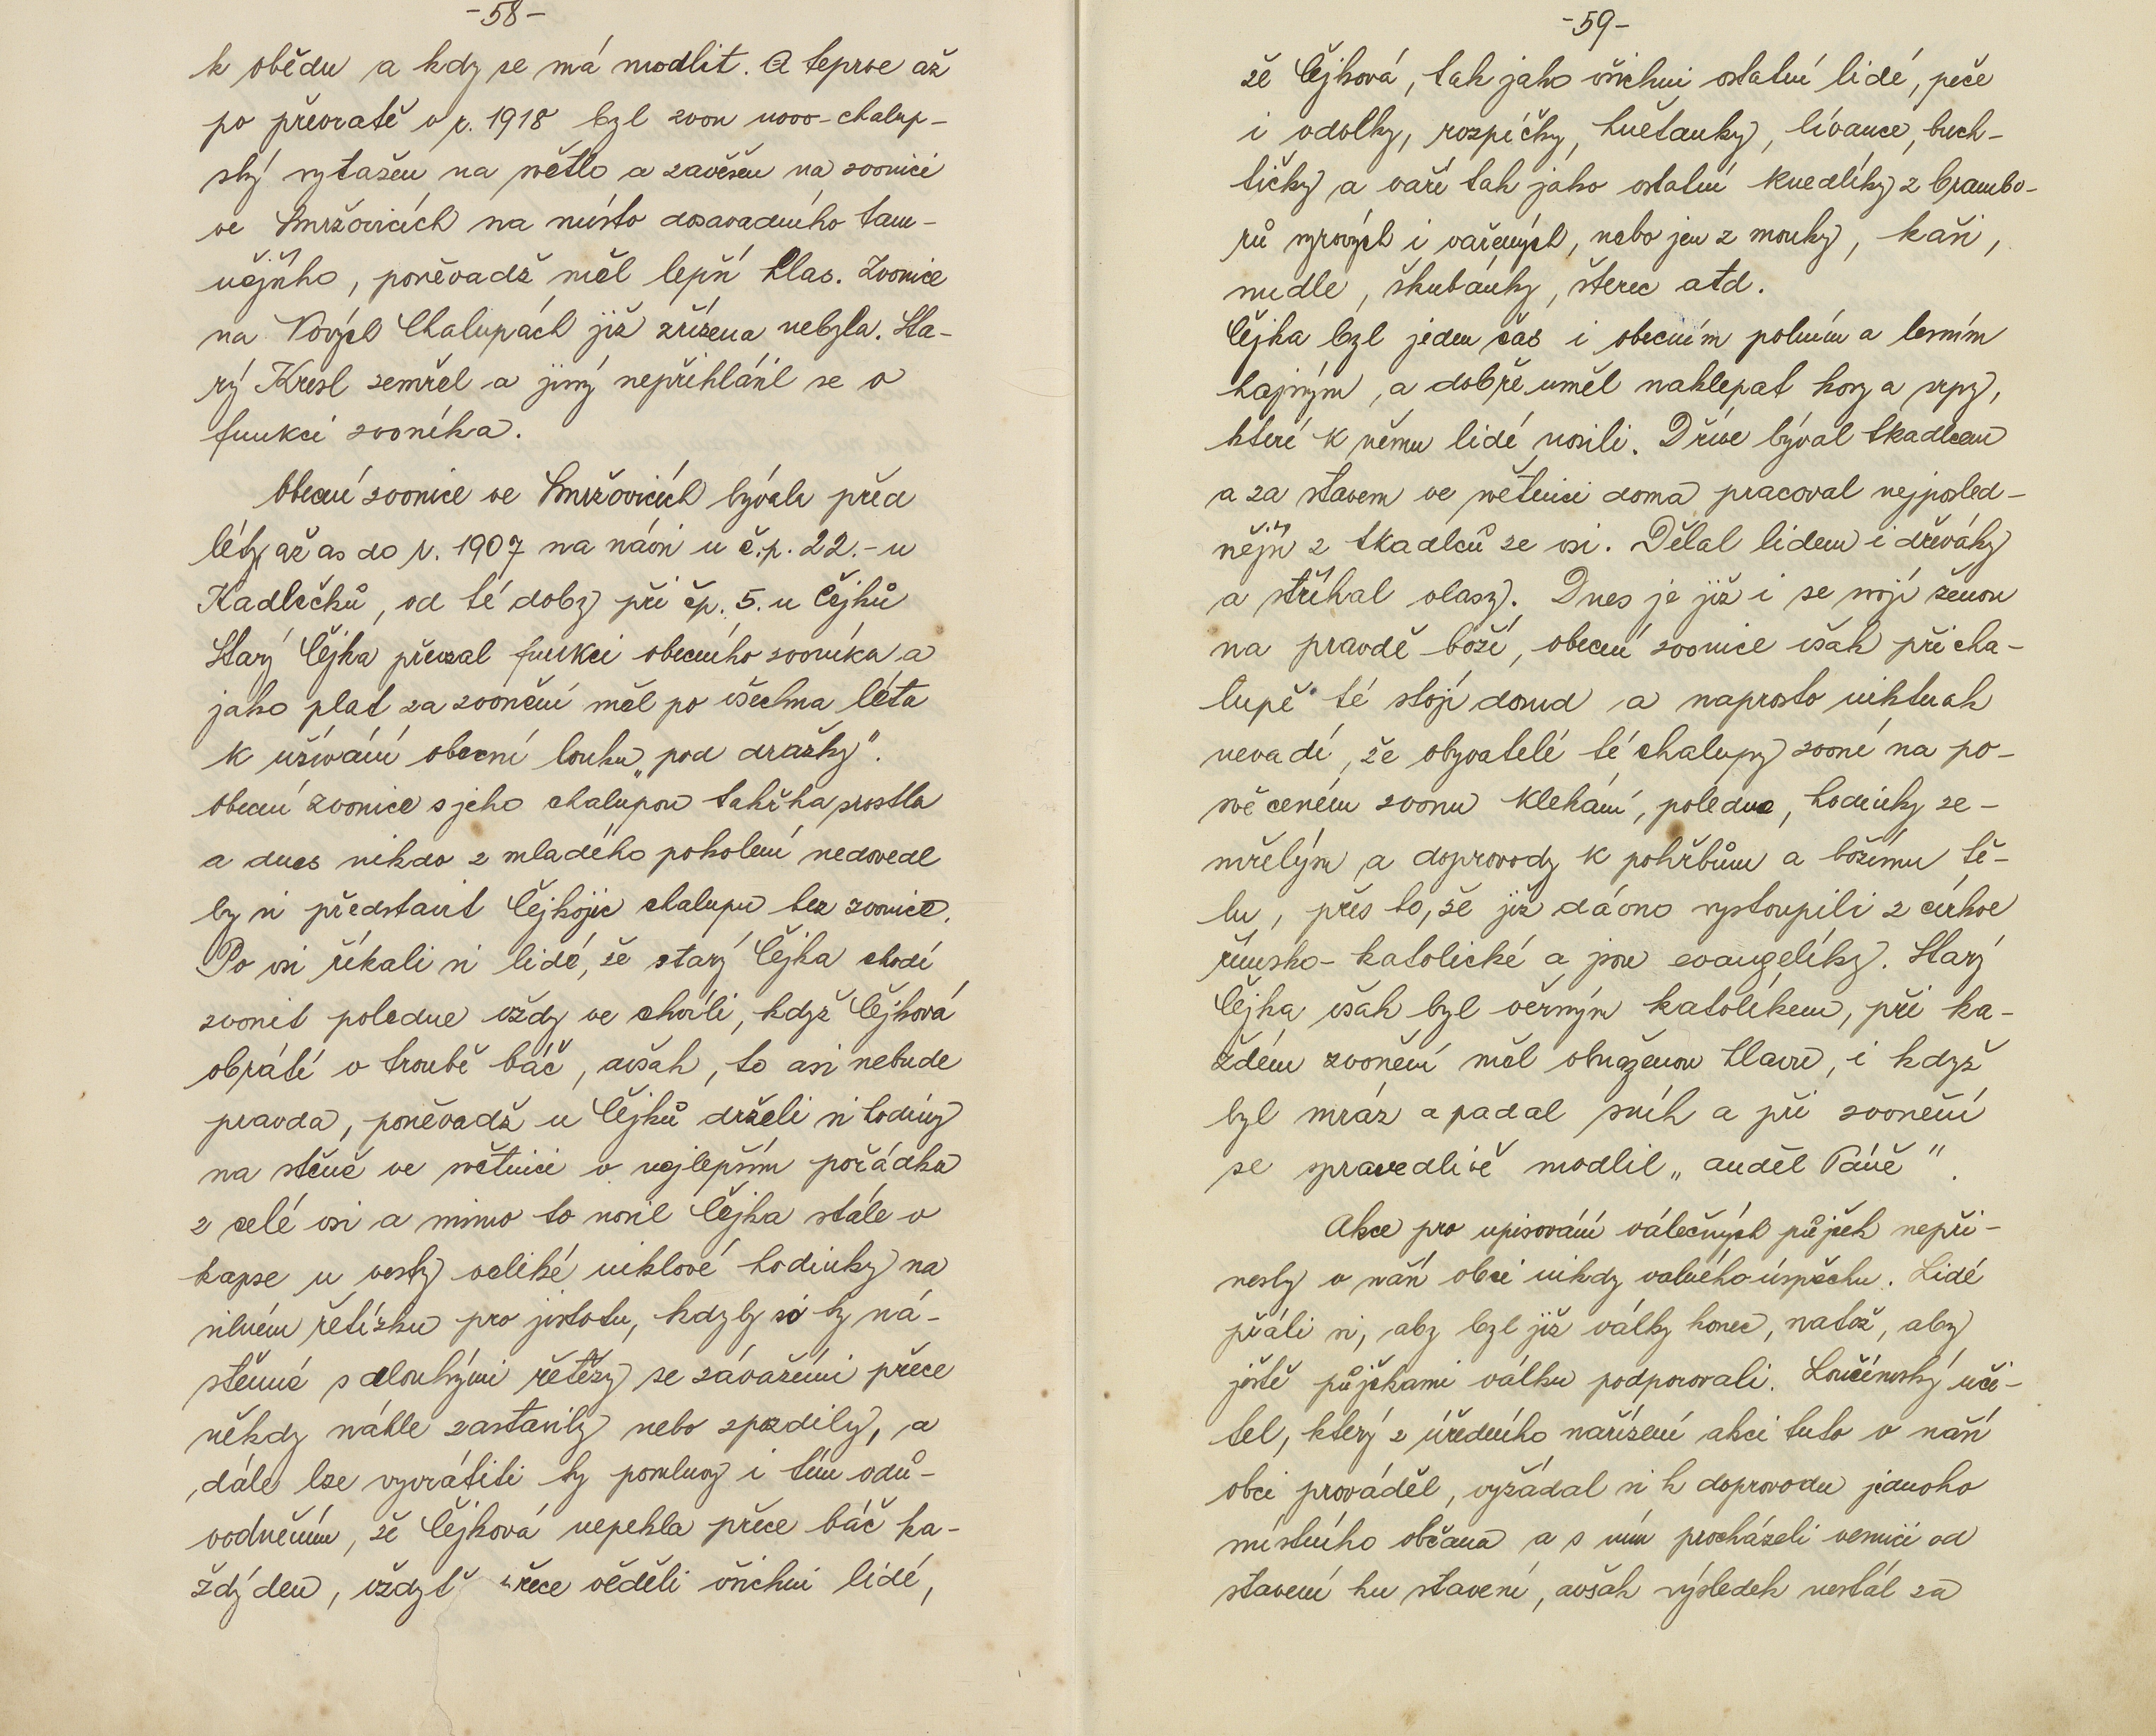 -58-
k obědu a kdy se má modlit. A teprve až
po převratě v r. 1918 byl zvon novo-chalup-
ský vytažen na světlo a zavěšen na zvonici
ve Smržovicích na místo dosavadního tam-
nějšího, poněvadž měl lepší hlas. Zvonice
na Nových Chalupách již zřízena nebyla. Sta-
rý Kresl zemřel a jiný nepřihlásil se o
funkci zvoníka.
Obecní zvonice ve Smržovicích bývala před
léty až as do r. 1907 na návsi u č.p. 22.- u
Kadlečků, od té doby při čp. 5. u Čejků
Starý Čejka převzal funkci obecního zvoníka a
jako plat za zvonění měl po všechna léta
k užívání obecní louku „pod dražky".
obecní zvonice s jeho chalupou takřka srostla
a dnes nikdo z mladého pokolení nedovedl
by si představit Čejkojic chalupu bez zvonice.
Po vsi říkali si lidé, že starý Čejka chodí
zvonit poledne vždy ve chvíli, když Čejková
obrátí v troubě báč, avšak, to asi nebude
pravda, poněvadž u Čejků drželi si hodiny
na stěně ve světnici v nejlepším pořádku
z celé vsi a mimo to nosil Čejka stále v
kapse u vesty veliké niklové hodinky na
silném řetízku pro jistotu, kdyby si ty ná-
stěnné s dlouhými řetězy se závažími přece
někdy náhle zastavily nebo zpozdily, a
dále lze vyvrátiti ty pomluvy i tím odů-
vodněním, že Čejková nepekla přece báč ka-
ždý den, vždyť přece věděli všichni lidé,
-59-
že Čejková, tak jako všichni ostatní lidé, peče
i vdolky, rozpíčky, hnětanky, lívance, buch-
tičky a vaří tak jako ostatní knedlíky z brambo-
rů syrových i vařených, nebo jen z mouky, kaši,
nudle, škubánky, šterc atd.
Čejka byl jeden čas i obecním polním a lesním
hajným, a dobře uměl naklepat kosy a srpy,
které k němu lidé nosili. Dříve býval tkadlcem
a za stavem ve světnici doma pracoval nejposled-
nější z tkadlců ze vsi. Dělal lidem i dřeváky
a stříhal vlasy. Dnes je již i se svojí ženou
na pravdě boží, obecní zvonice však při cha-
lupě té stojí dosud a naprosto nikterak
nevadí, že obyvatelé té chalupy zvoní na po-
svěceném zvonu klekání, poledne, hodinky ze-
mřelým a doprovody k pohřbům a božímu tě-
lu, přes to, že již dávno vystoupili z církve
římsko-katolické a jsou evangelíky. Starý
Čejka však byl věrným katolíkem, při ka-
ždém zvonění měl obnaženou hlavu, i když
byl mráz a padal sníh a při zvonění
se spravedlivě modlil „anděl Páně".
Akce pro upisování válečných půjček nepři-
nesly v naší obci nikdy valného úspěchu. Lidé
přáli si, aby byl již války konec, natož, aby
ještě půjčkami válku podporovali. Loučímský uči-
tel, který z úředního nařízení akci tuto v naší
obci prováděl, vyžádal si k doprovodu jednoho
místního občana a s ním procházeli vesnici od
stavení ku stavení, avšak výsledek nestál za